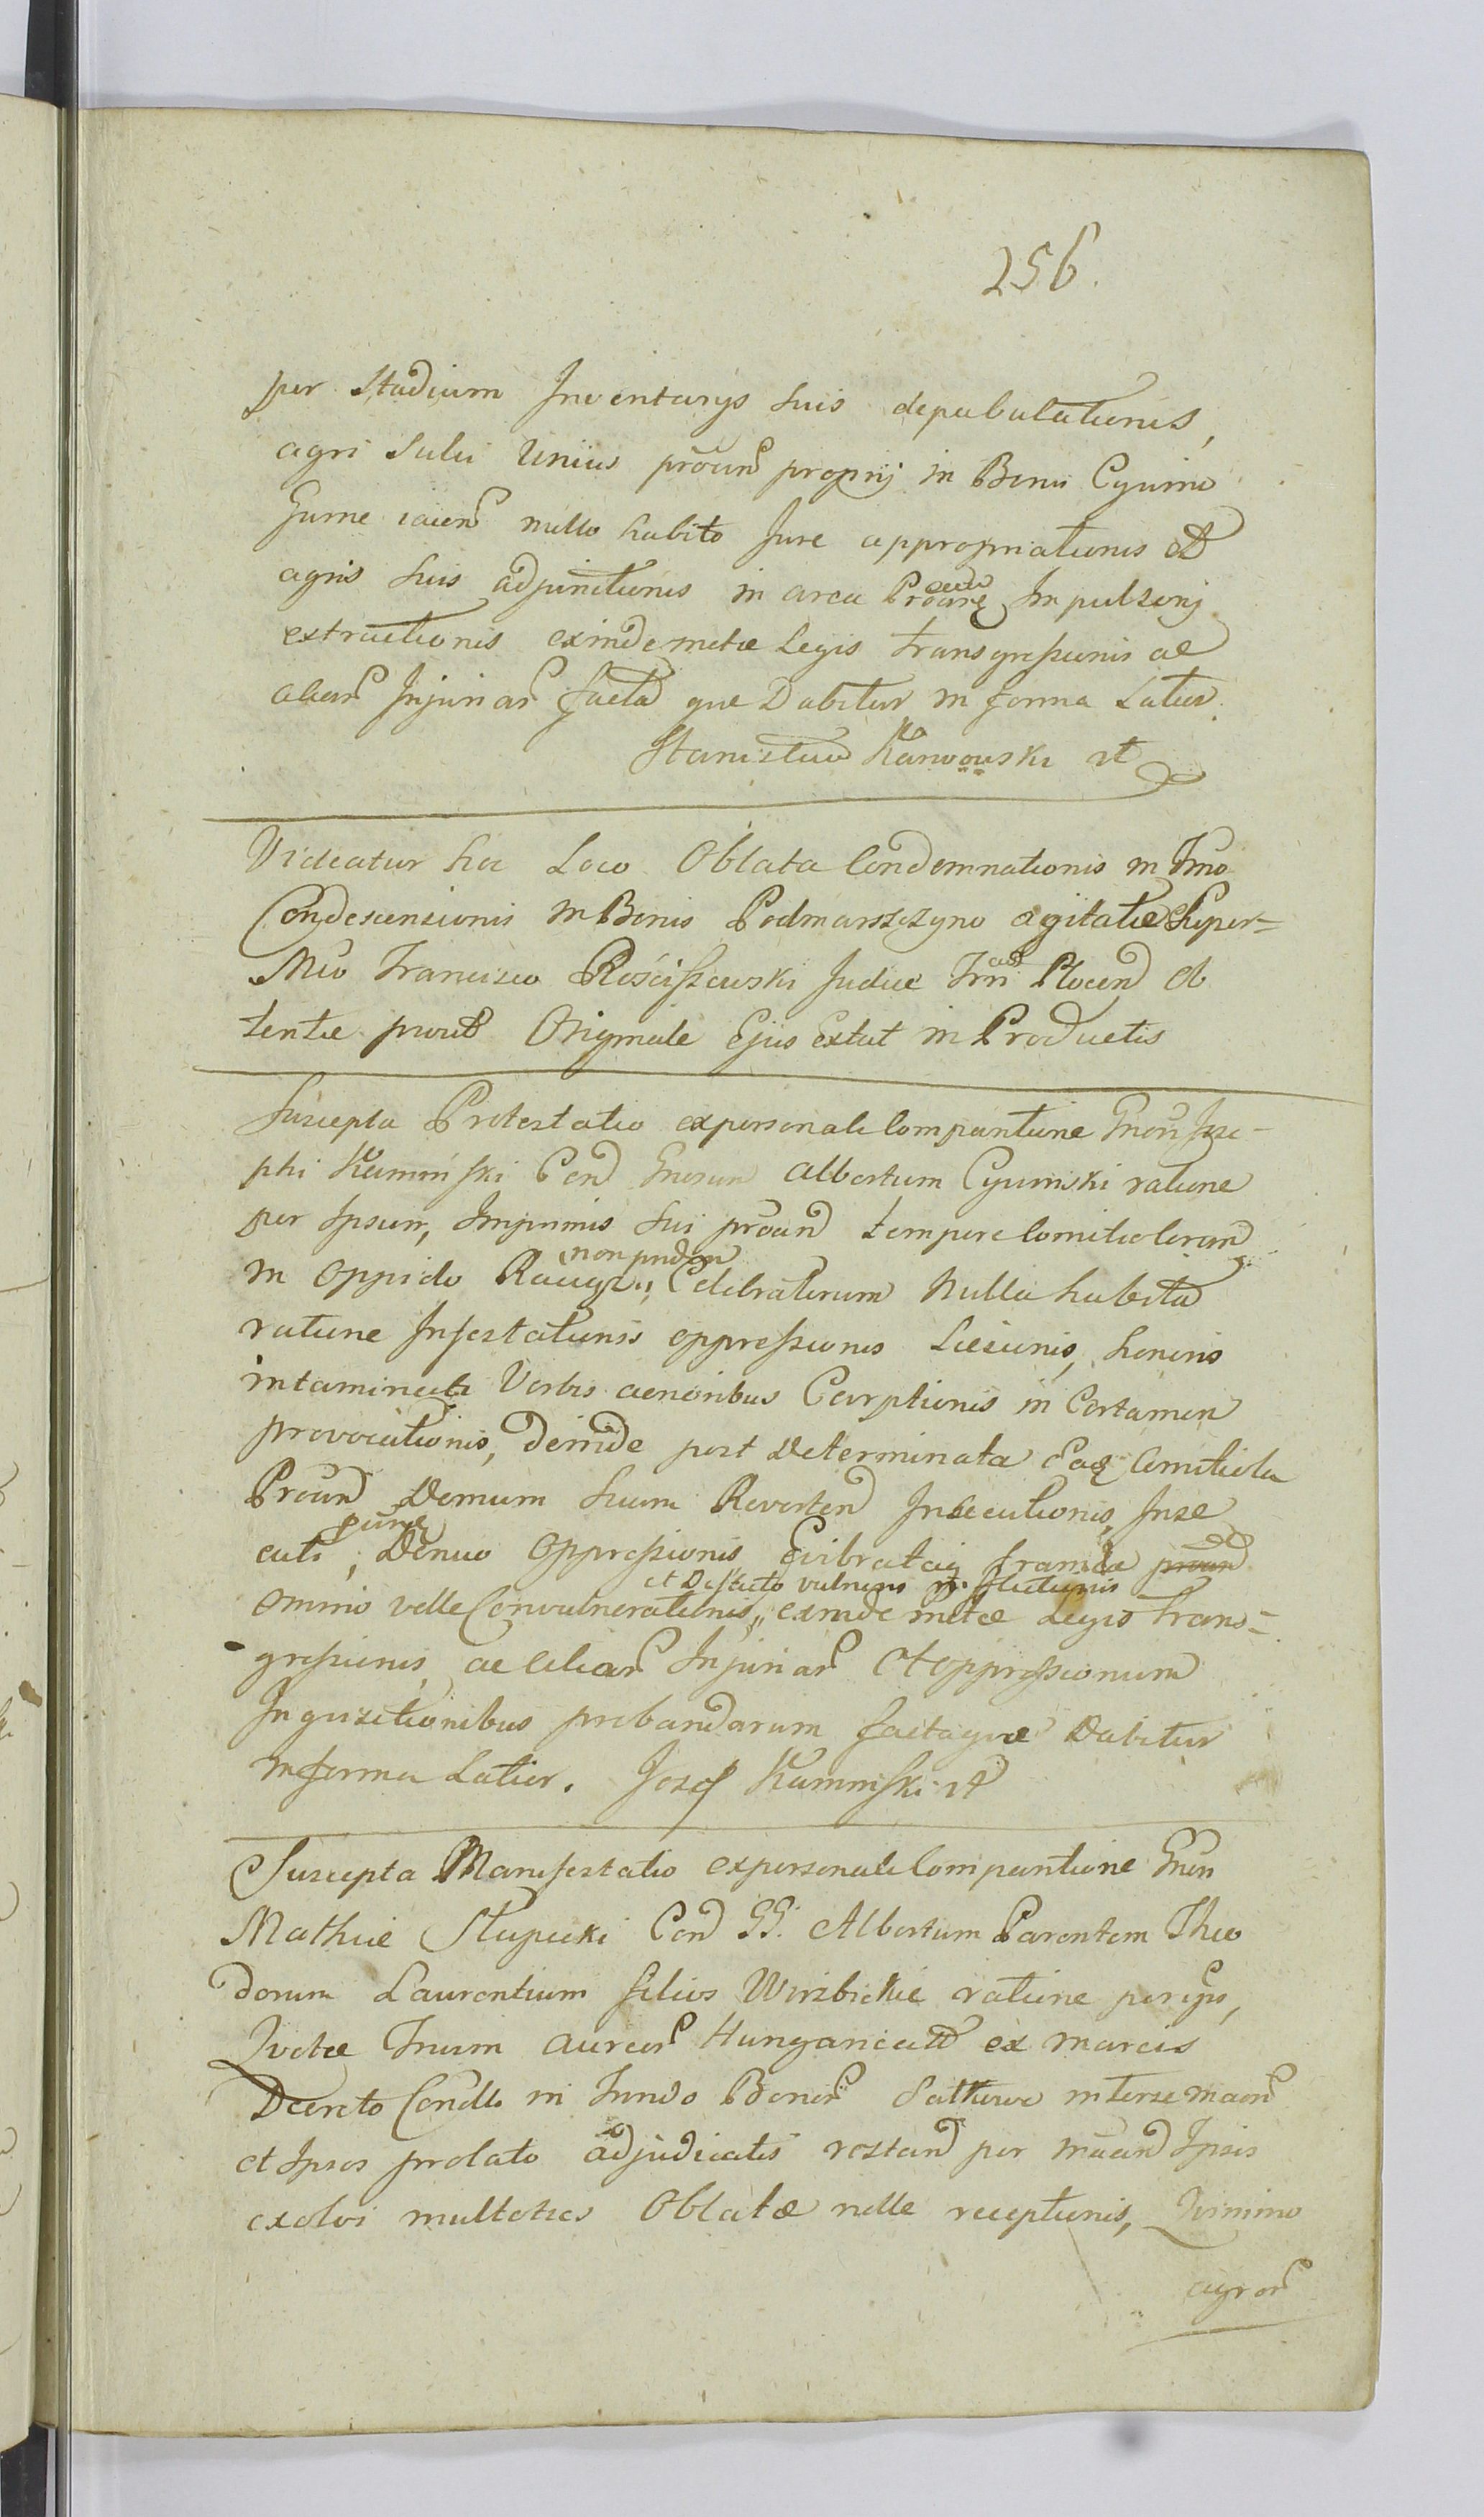 256.
per Stadium Inventarys suis depabulationis,
agri Soli Unius proñ proprij in Bonis Cyuino
Gume iaceñ nullo habito Jure appropriationis et
agris suis adjunctionis in area Impulzorij
extructionis exinde metæ Legis transgreſsionis ac
aliar Injuriar facta que Dabitur in forma Latior.
Stanisław Karwowski rt
Videatur hoc Loco Oblata Condemnationis in Tmo
Condescensionis in Bonis Podmarszczyno agitatæ super
Mco Francisco Rościſzewski Judice Trri Plocen ob
tentæ prout Originale Ejus extat in Productis
Suscepta Protestatio ex personali Comparitione Gnosi Jose-
phi Kamiński Con Gnosum Albertum Cyuiński ratione
per Ipsum, Imprimis Sui proan tempore Comitiolorum
in Oppido non pridem Celebratorum Nulla habita
ratione Infestationis oppreſsionis Læsionis, honoris
intaminati Verbis acrioribus Carptionis in Certamen
provocationis, deinde post Determinata Eaq Comitiola
Proan Domum Suum Reverten Insecutionis, Inse
cuti, Denuo Oppreſsionis Evibrataq framea
et Defacto vulneris
Omnio velle Convulnerationis, exinde metæ Legis trans-
greſsionis, ac aliar Injuriar et oppreſsionum
Inquisitionibus probandarum factaque Dabitur
in forma Latior. Jozef Kaminſki rt
Suscepta Manifestatio ex personali Comparitione Gnosi
Mathiæ Słupecki Con GG. Albertum Parentem Theo
dorum Laurentium filios Wirzbickie ratione per ipsos,
Quotæ Trium aureor Hungaricali ex marcis
Decreto Condto in Fundo Bonor inter se
et Ipsos prolato adjudicatis restan per Ipsis
exolvi multoties Oblatæ nolle receptionis, Quinimo
agror